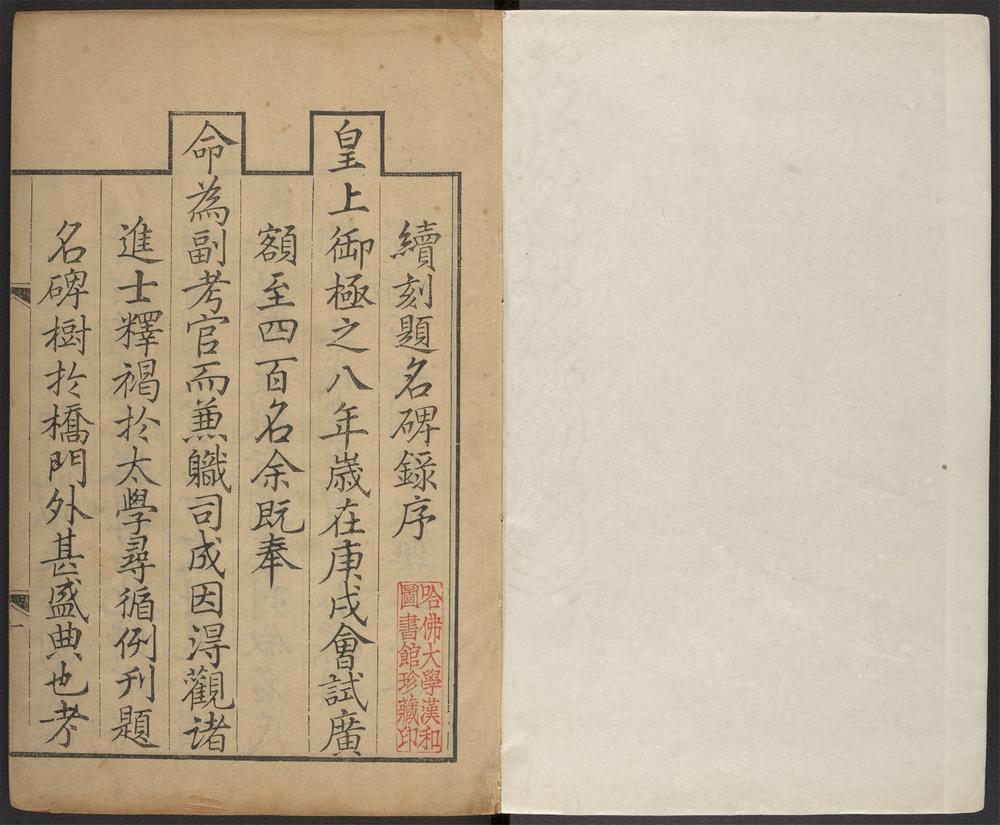 續刻題名碑錄序
皇上御極之八年嵗在庚戌會試廣
額至四百名余既奉
命為副考官而兼職司成因淂觀诸
進士釋褐扵太學尋循例刋題
名碑樹扵橋門外甚盛典也考
哈佛大學漢和
圖書館珍藏印
一